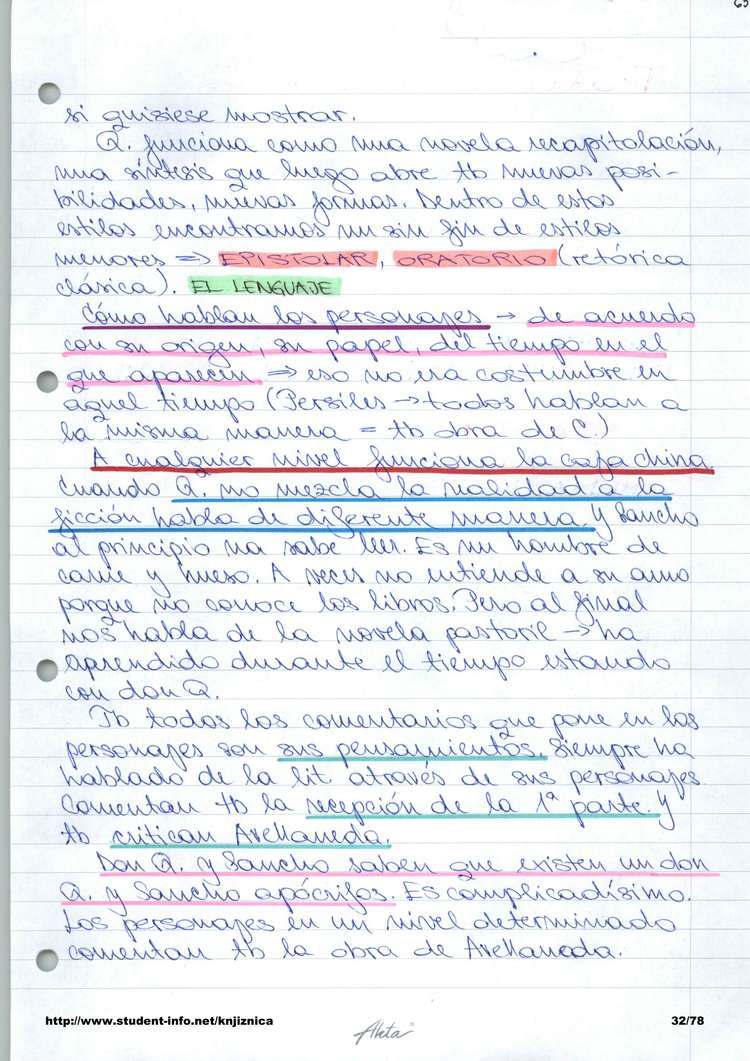 si quiziese mostrar.
Q. funciona como una novela recapitolación,
una síntesis que luego abre tb nuevas posi-
bilidades, nuevas formas. Dentro de estos
estilos encontramos un sin fin de estilos
menores => EPISTOLAR, ORATORIO (retórica
clásica). EL LENGUAJE
Cómo hablan los personajes → de acuerdo
con su origen, su papel, del tiempo en el
que aparecen => eso no era costumbre en
aquel tiempo (Persiles → todos hablan a
la misma manera = tb obra de C.)
A cualquier nivel funciona la caja china.
Cuando Q. no mezcla la realidad a la
ficción habla de diferente manera. Y Sancho
al principio na sabe leer. Es un hombre de
carne y hueso. A veces no entiende a su amo
porque no conoce los libros. Pero al final
nos habla de la novela pastoril → ha
aprendido durante el tiempo estando
con don Q.
Tb todos los comentarios que pone en los
personajes son sus pensamientos. Siempre ha
hablado de la lit. através de sus personajes.
Comentan tb la recepción de la 1ª parte. Y
tb critican Avellaneda.
Don Q. y Sancho saben que existen un don
Q. y Sancho apócrifos. Es complicadísimo.
Los personajes en un nivel determinado
comentan tb la obra de Avellaneda.
http://www.student-info.net/knjiznica
Akta
32/78